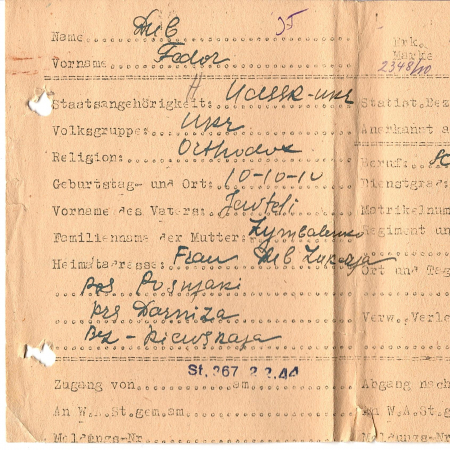 Name Diıb 35
Vorname Fedor
Erk.
Marke
2348/10
Staatsangehörigkeit: UdSSR-ukr
Volksgruppe: ukr
Religion: Orthodox
Geburtstag- und Ort: 10-10-10
Vorname des Vaters: Jewfefi
Familienname der Mutter: Zymbalenko
Heimatadresse: Frau
pos Posnjaki
krs Darniza
Bez - Kiewskaja
St. 367 2.2.44
Zugang von am
An W.A.St.gem.am
Meldungs-Nr
Statist.Bez
Anerkannt a
Beruf:
Dienstgrad:
Matrikelnum
Regiment un
Ort und Tag
Verw. Verle
Abgang nach
An W.A.St.g
Meldungs-Nr